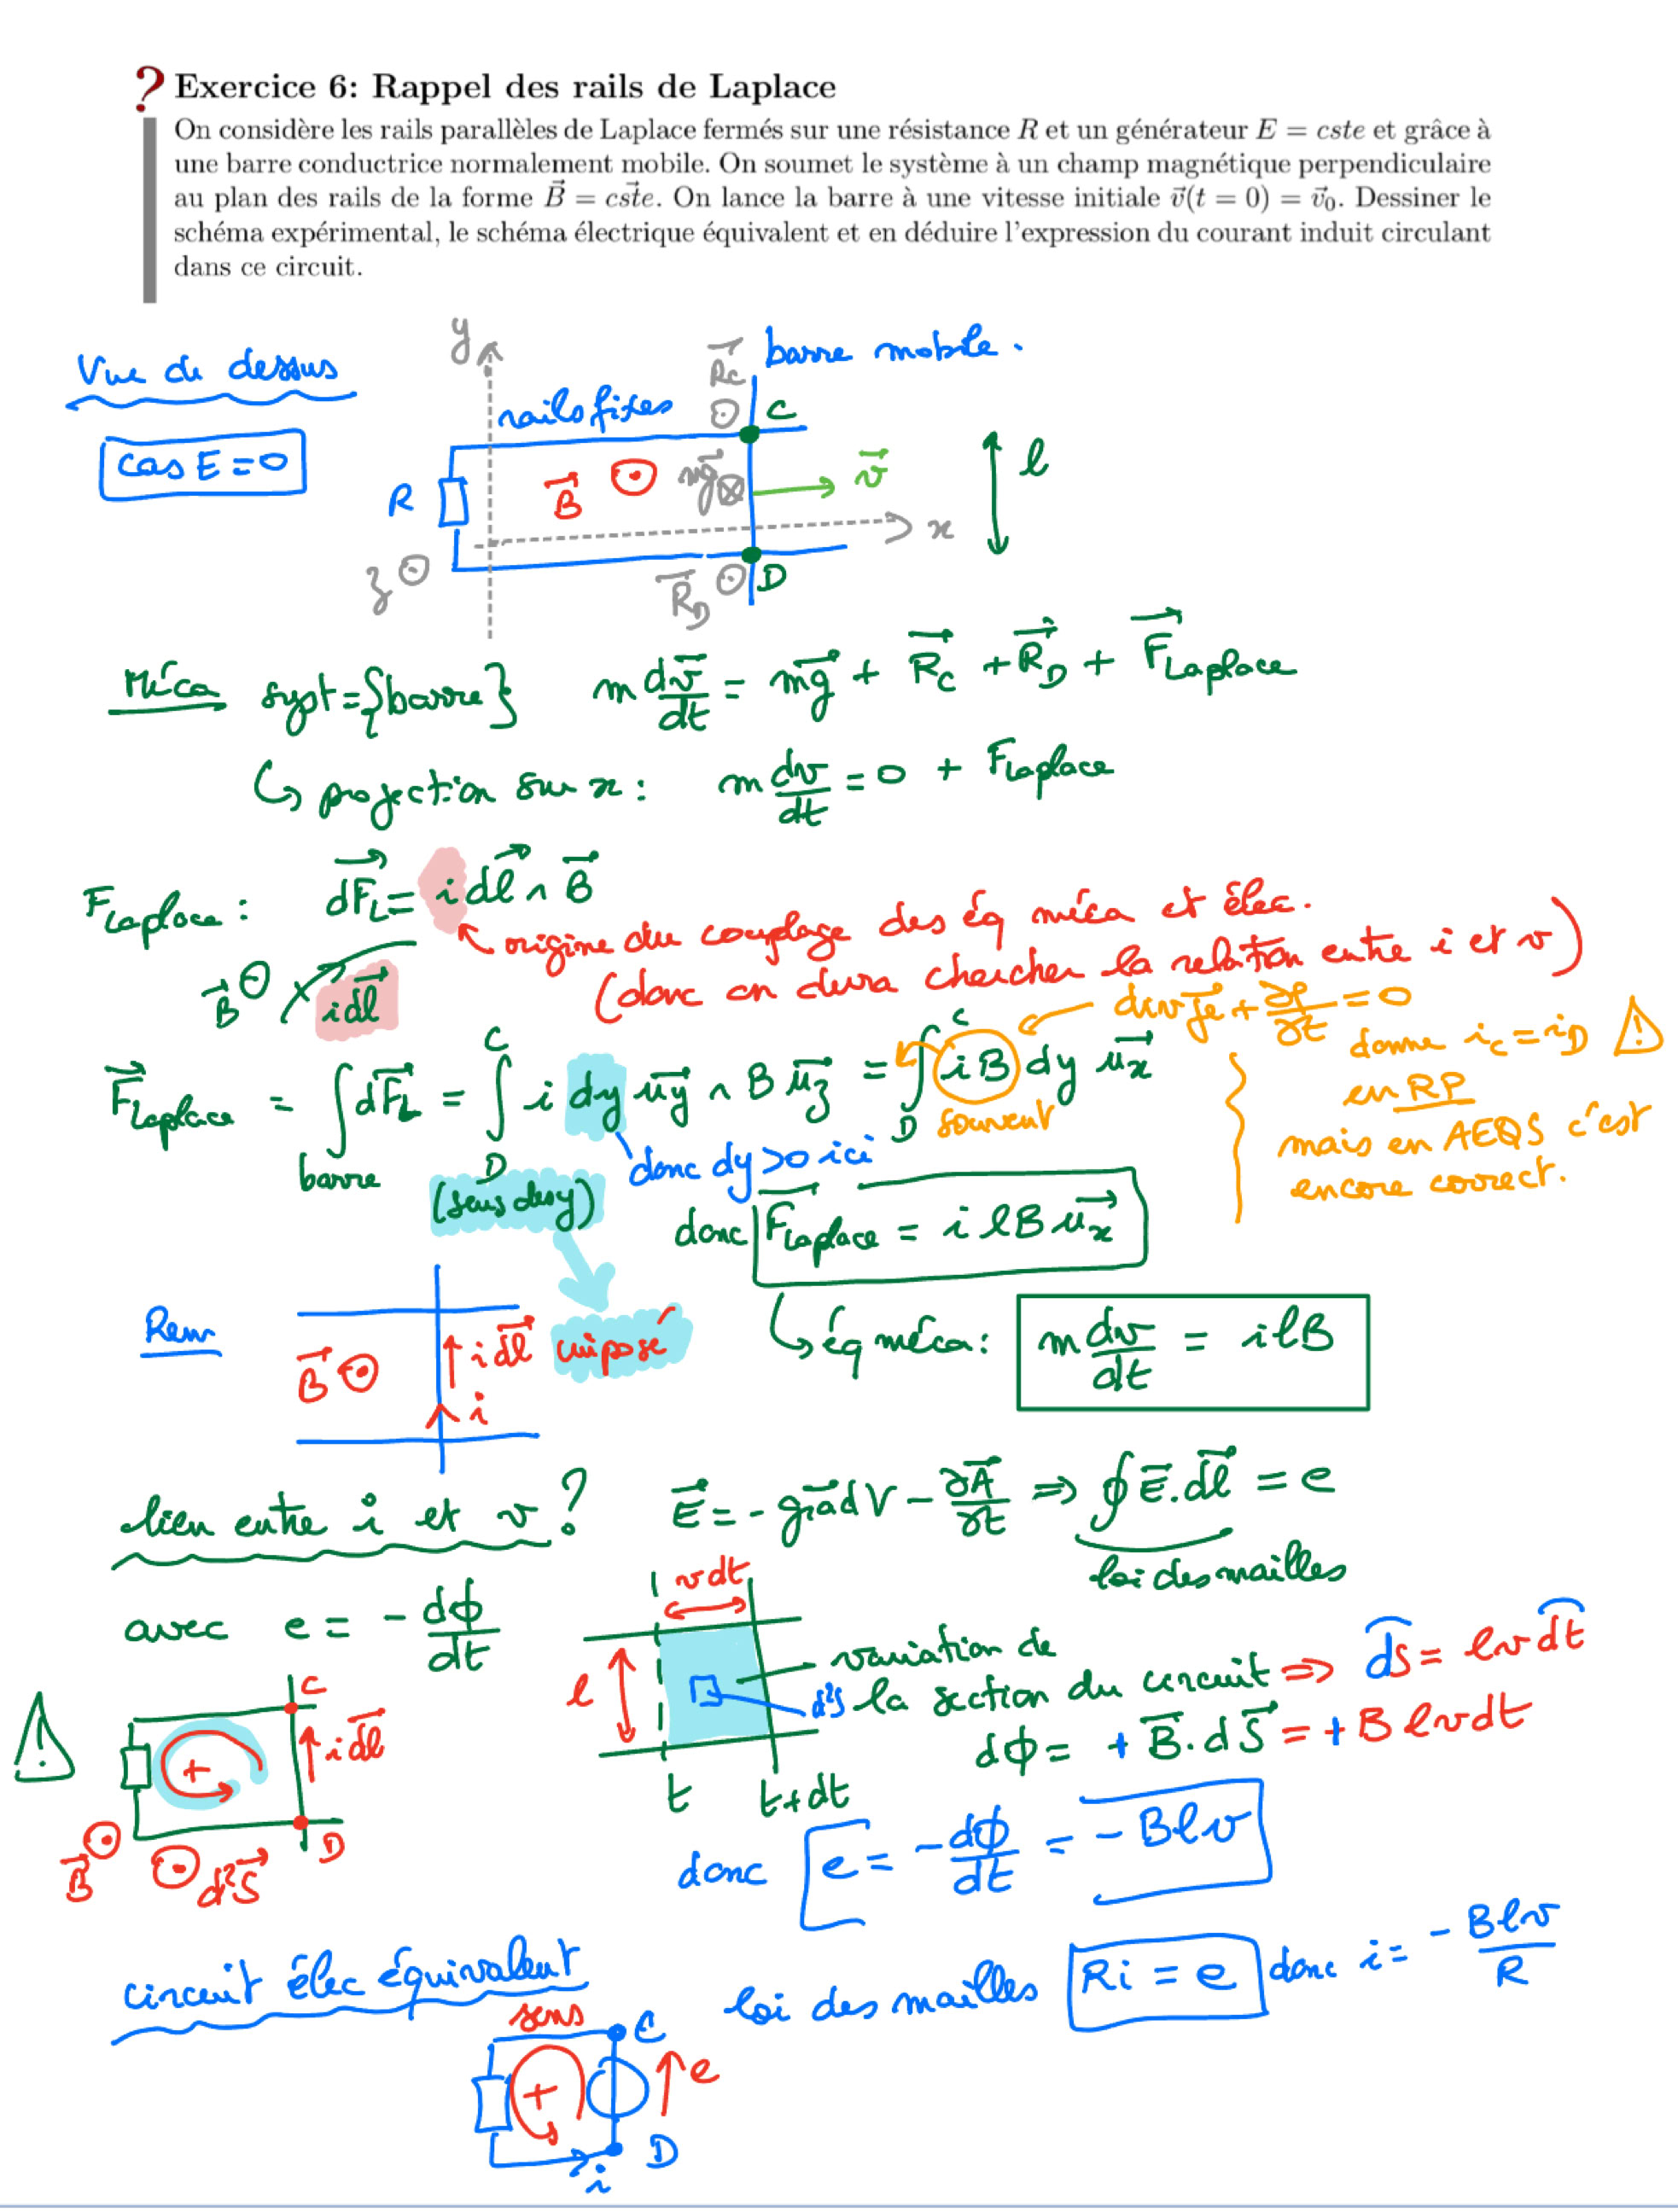 ? Exercice 6: Rappel des rails de Laplace
On considère les rails parallèles de Laplace fermés sur une résistance R et un générateur E = cste et grâce à
une barre conductrice normalement mobile. On soumet le système à un champ magnétique perpendiculaire
au plan des rails de la forme B⃗ = cs⃗te. On lance la barre à une vitesse initiale v⃗(t = 0) = v⃗₀. Dessiner le
schéma expérimental, le schéma électrique équivalent et en déduire l'expression du courant induit circulant
dans ce circuit.
Vue de dessus
cas E = 0
y
R⃗c
barre mobile.
rails fixes
C
R
B⃗
mg⃗
v⃗
l
x
z
R⃗D
D
Méca syst = {barre} m dv⃗/dt = mg⃗ + R⃗c + R⃗D + F⃗Laplace
↳ projection sur x : m dv/dt = 0 + FLaplace
FLaplace : dF⃗L = i dl⃗ ∧ B⃗
origine du couplage des éq méca et élec.
(donc on devra chercher la relation entre i et v)
B⃗ i dl⃗
div j⃗e + ∂ρ/∂t = 0
F⃗Laplace = ∫barre dF⃗L = ∫_D^C i dy u⃗y ∧ B u⃗z = ∫_D^C iB dy u⃗x
donne ic = iD
en RP
mais en AEQS c'est
encore correct.
souvent
(sens de y)
donc dy > 0 ici
donc F⃗Laplace = i l B u⃗x
Rem
B⃗
i dl⃗ imposé
i
↳ éq méca : m dv/dt = i l B
lien entre i et v ?
E⃗ = - gra⃗d V - ∂A⃗/∂t ⇒ ∮ E⃗ . dl⃗ = e
loi des mailles
avec e = - dϕ/dt
v dt
l
d²S
t
t+dt
variation de
la section du circuit ⇒ dS = l v dt
dϕ = + B⃗ . dS⃗ = + B l v dt
C
+
i dl⃗
D
B⃗
d²S⃗
donc e = - dϕ/dt = - B l v
circuit élec équivalent
loi des mailles Ri = e donc i = - Blv/R
sens
C
+
e
D
i